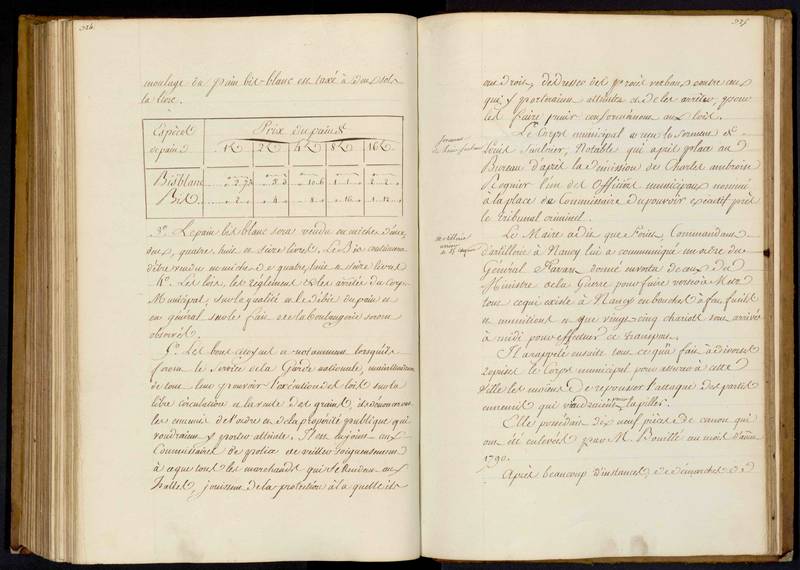 324.
moulage du pain bis-blanc est taxé à deux sols
la livre.
Espèces de pains
Prix du pain de
1 L 2 L 4 L 8 L 16 L
Bis blanc
Bis
3.º Le pain bis blanc sera vendu en miche d'une,
deux, quatre, huit et seize livres. Le Bis continuera
d'être vendu en miche de quatre, huit et seize livres
4.º Les lois, les règlemens et les arrêtés du Corps
Municipal, sur la qualité et le débit du pain et
en général sur le fait de la boulangerie seront
observés.
5.º Les bons citoyens et notamment lorsqu'ils
feront le service de la Garde nationale, maintiendront
de tout leur pouvoir l'exécution des lois sur la
libre circulation et la vente des grains, ils dénonceront
les ennemis de l'ordre et de la propriété publique qui
voudraient y porter atteinte. Il est enjoint aux
Commissaires de police de veiller soigneusement
à ce que tous les marchands qui se rendent aux
halles, jouissent de la protection à la quelle ils
325.
ont droit, de dresser des procès verbaux contre ceux
qui y porteraient atteinte et de les arrêter, pour
les faire punir conformément aux lois.
Serment
Le Corps municipal a reçu le serment de
Louis Saulnier, Notable qui a pris place au
Bureau d'après la démission de Charles ambroise
Regnier l'un des Officiers municipaux nommé
à la place de Commissaire du pouvoir exécutif près
le tribunal criminel.
Artillerie
Le Maire a dit que Poirel, Commandant
d'artillerie à Nancy lui a communiqué un ordre du
Général donné en vertu de ceux du
Ministre de la Guerre pour faire verser à Metz
tout ce qui existe à Nancy en bouches à feu, fusils
et munitions et que vingt-cinq chariots sont arrivés
à midi pour effectuer ce transport.
Il a rappelé ensuite tout ce qu'a fait à diverses
reprises le Corps municipal pour assurer à cette
ville les moyens de repousser l'attaque des partis
ennemis qui voudraient venir la piller.
Elle possédait dix neuf pièces de canon qui
ont été enlevées par M. Bouillé au mois d'août
1790.
Après beaucoup d'instances, et de démarches de